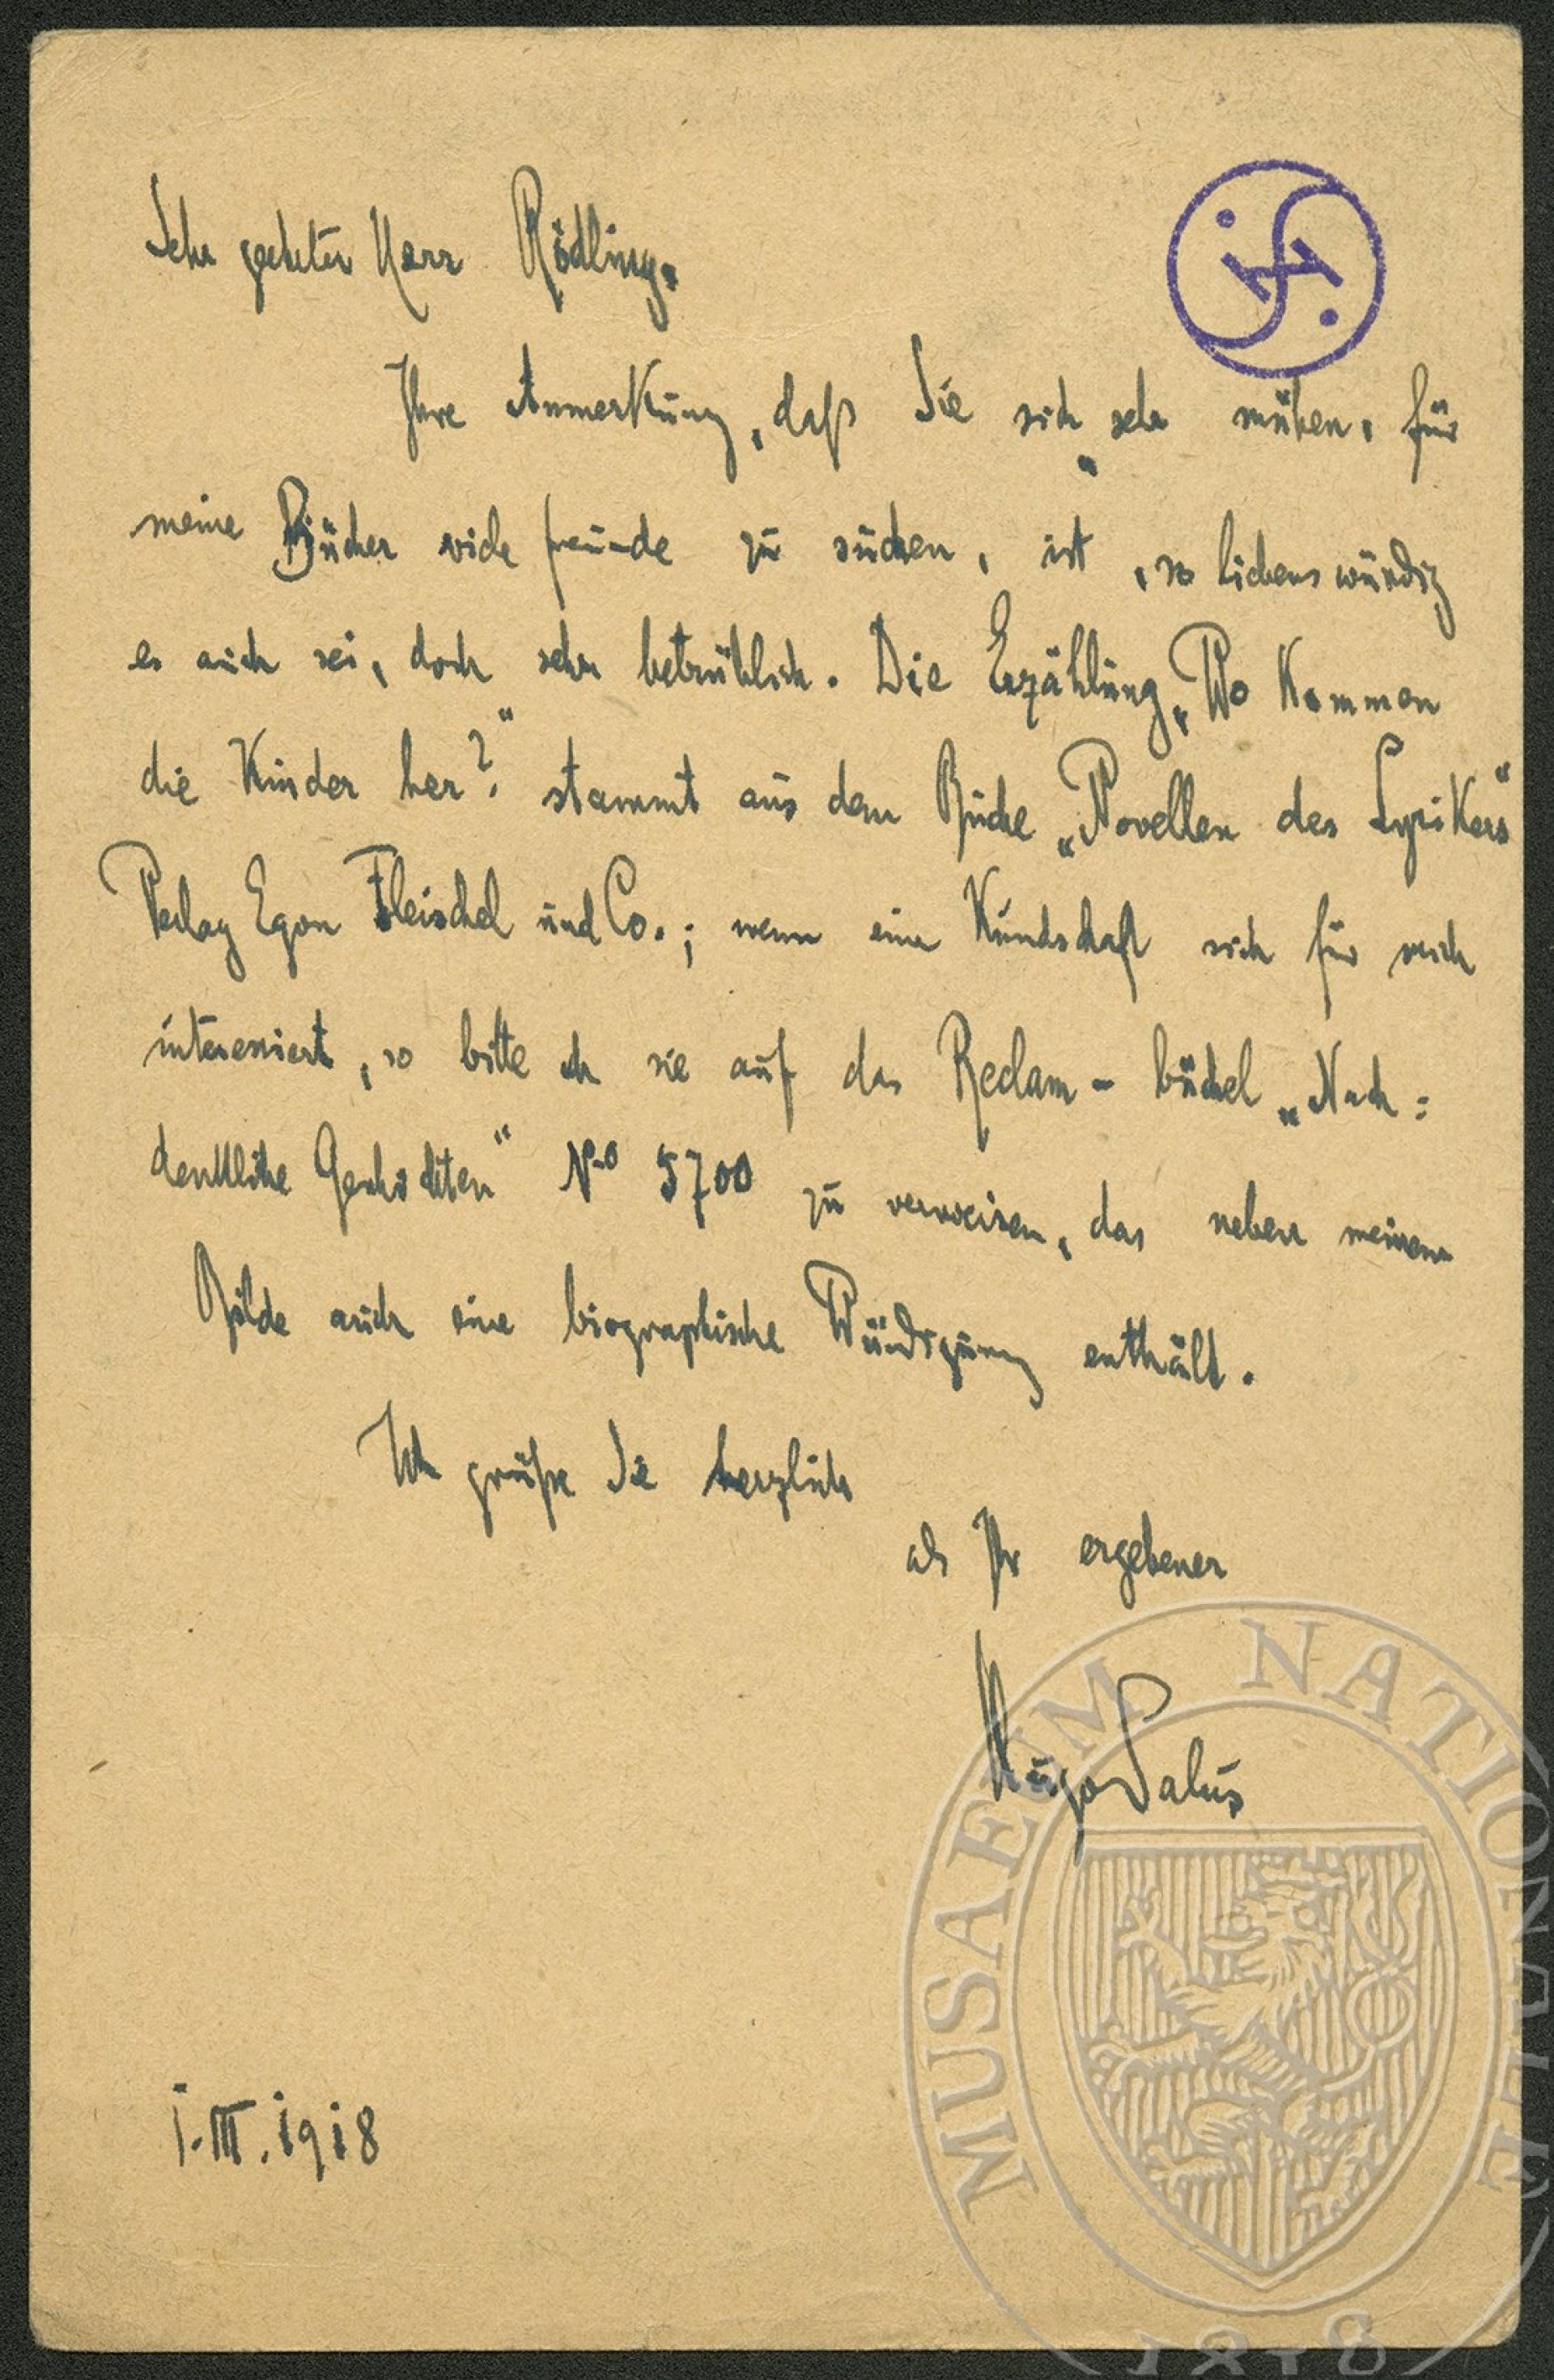 Sehr geehrter Herr Rödling,
Ihre Anmerkung, daß Sie sich „sehr mühen, für
meine Bücher viele Freunde zu suchen, ist, so liebenswürdig
es auch sei, doch sehr betrüblich. Die Erzählung „Wo kommen
die Kinder her?“ stammt aus dem Buche „Novellen des Lyrikers“
Verlag Egon Fleischel und Co.; wenn eine Kundschaft sich für mich
interessiert, so bitte ich sie auf das Reclam-büchel „Nach=
denkliche Geschichten“ No 5700 zu verweisen, das neben meinem
Bilde auch eine biographische Würdigung enthält.
Ich grüße Sie herzlich
als Ihr ergebener
Hugo Salus
1.III.1918
MUSAEUM NATIONALE
1818